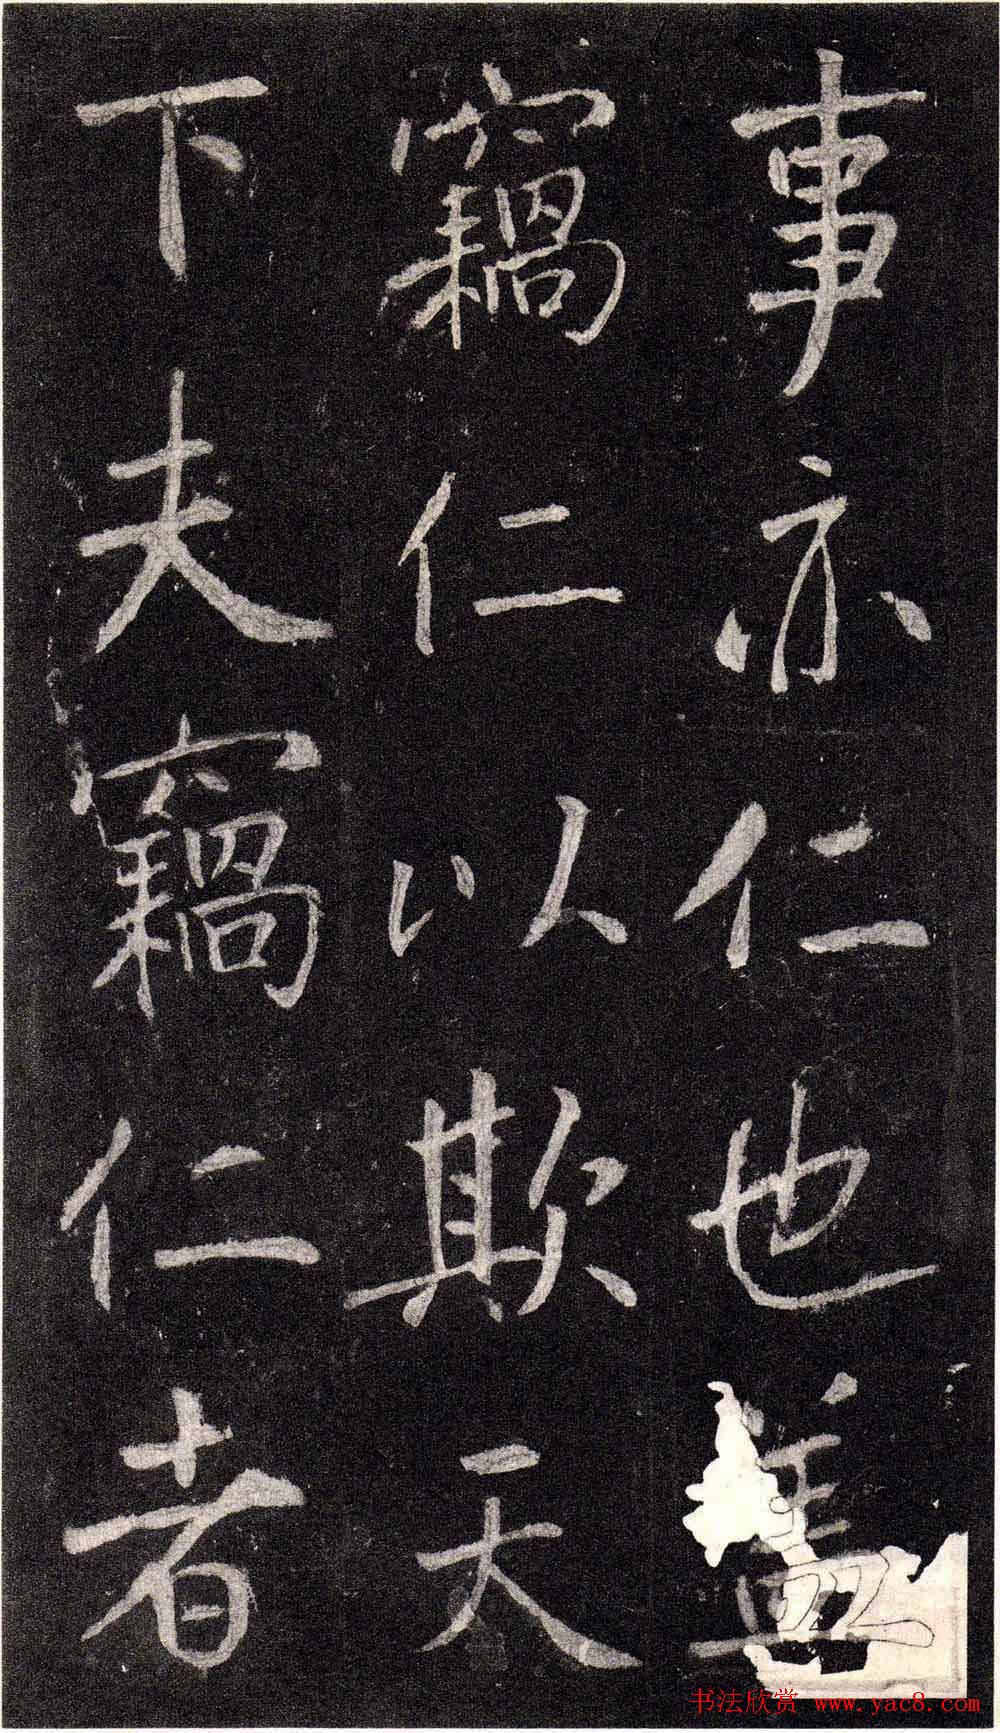 事亦仁也盖
竊仁以欺天
下夫竊仁者
书法欣赏 www.yac8.com